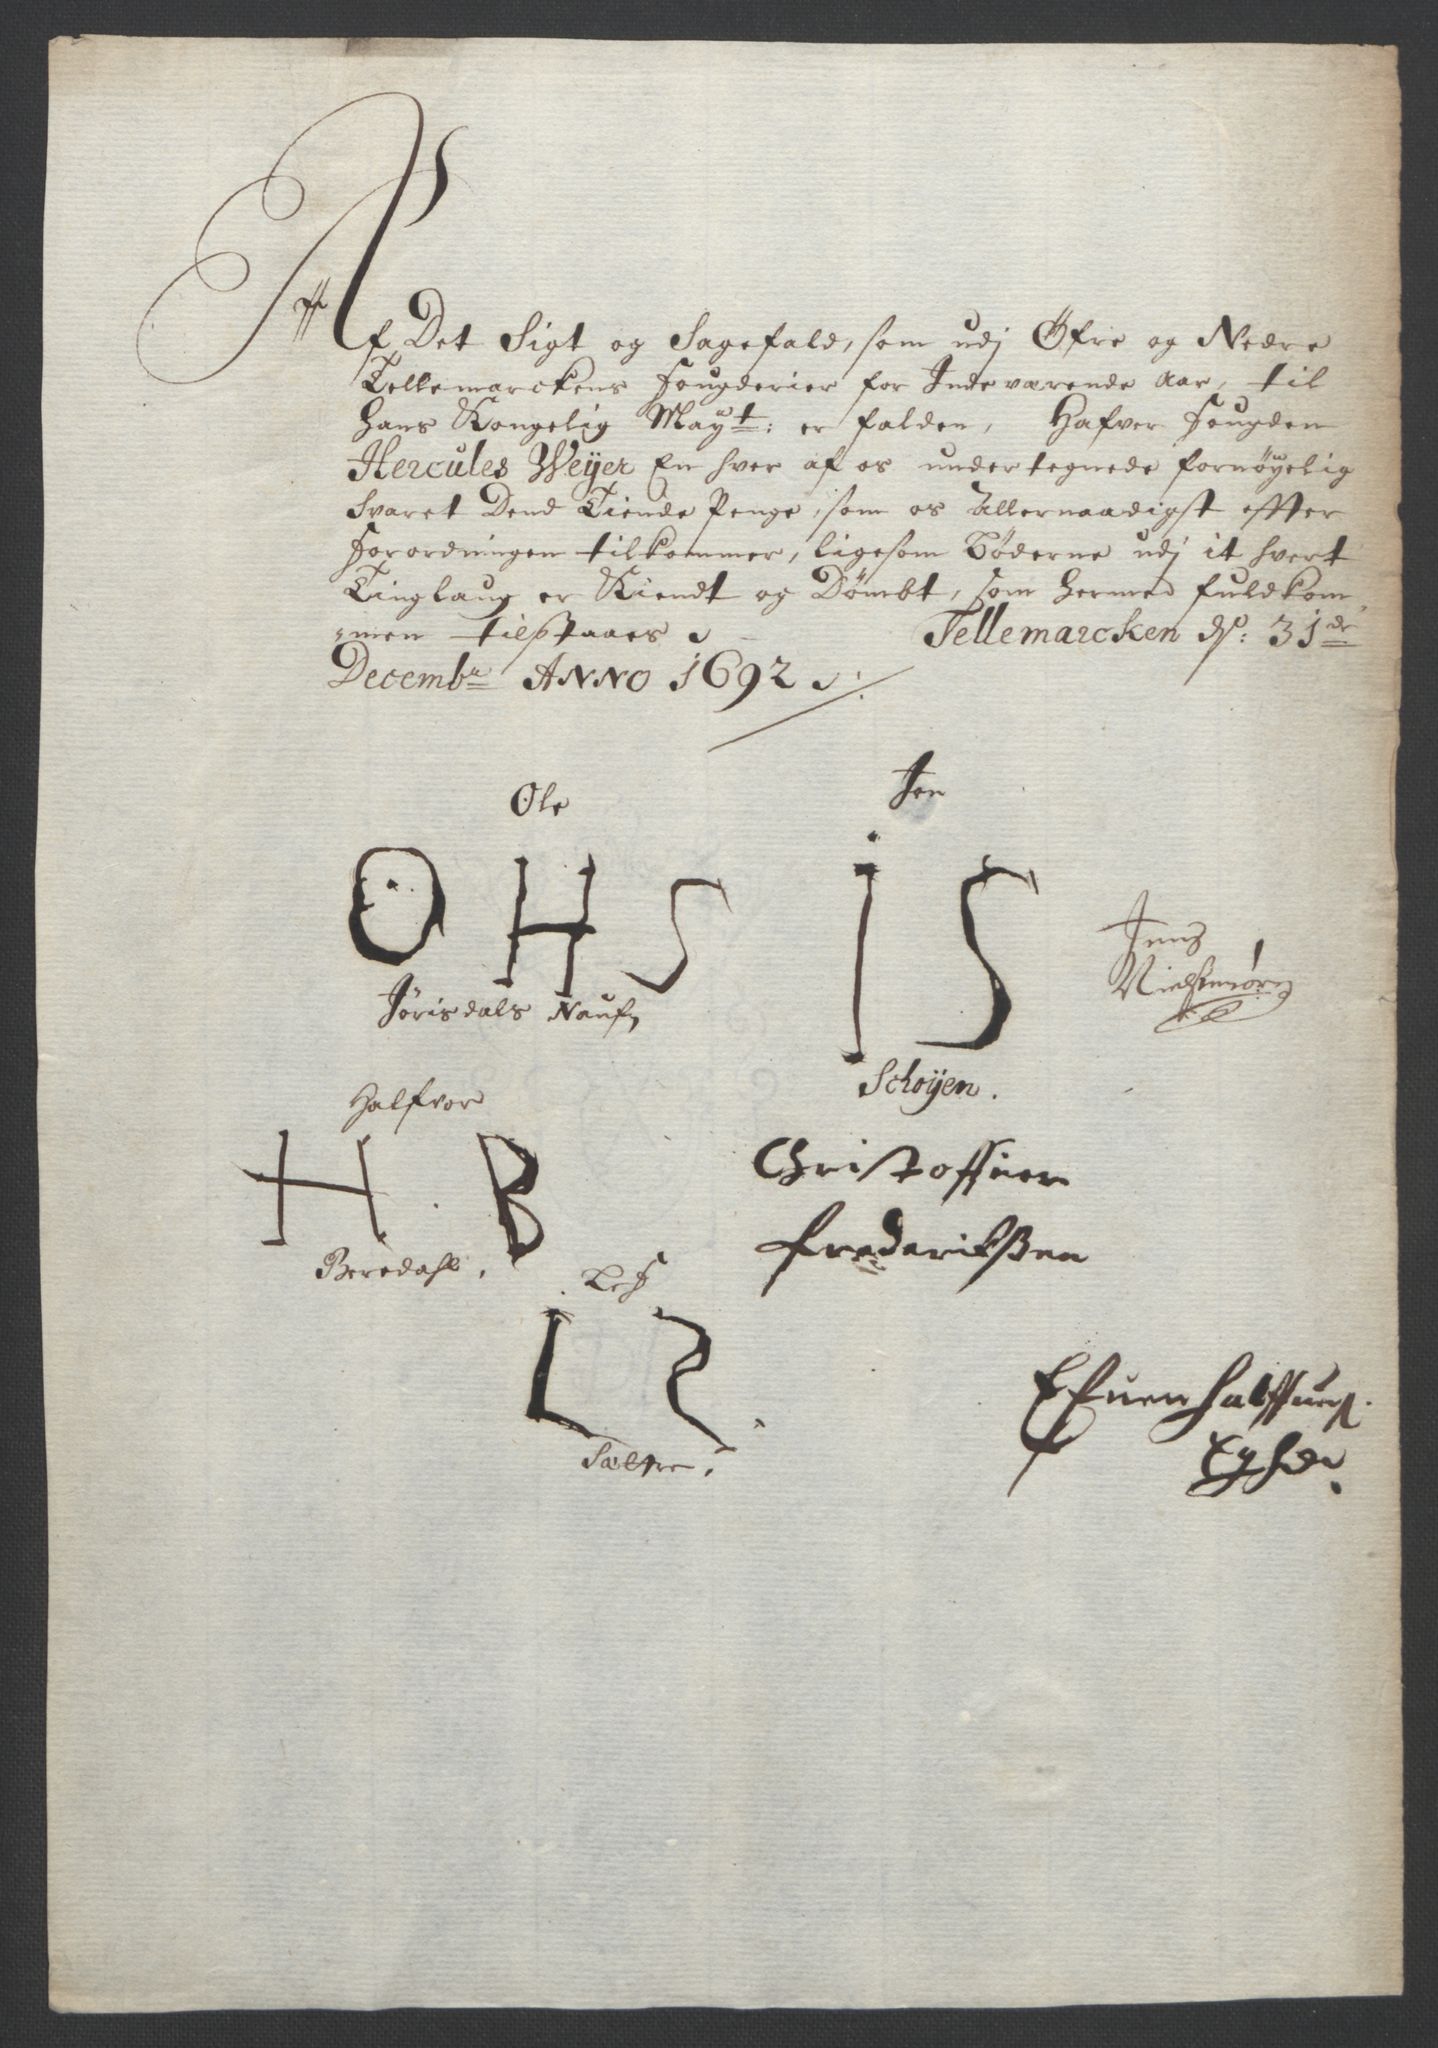 Af Det Sigt og Sagefald, som udj Øfre og Nedre
Tellemarckens fougderier for Inde værende Aar, til
Hans Kongelig Mayt: er falden, Hafver fougden
Hercules Weÿer En hver af os under tegnede fornøyelig
svaret Dend Tiende Penge, som os Allernaadigst effter
forordningen tilkommer, ligesom Bøderne udj it hvert
Tinglaug er Kiendt og Dømbt, som hermed fuldkom
men tilstaaes
Tellemarcken ds: 31de
Decembr ANNO 1692
Ole
Jon
OHS
IS
Jens
Jørisdals
Schoÿen.
Halfvor
HB
Christoffuer
Frederiksen
Lef
LS
Efuen